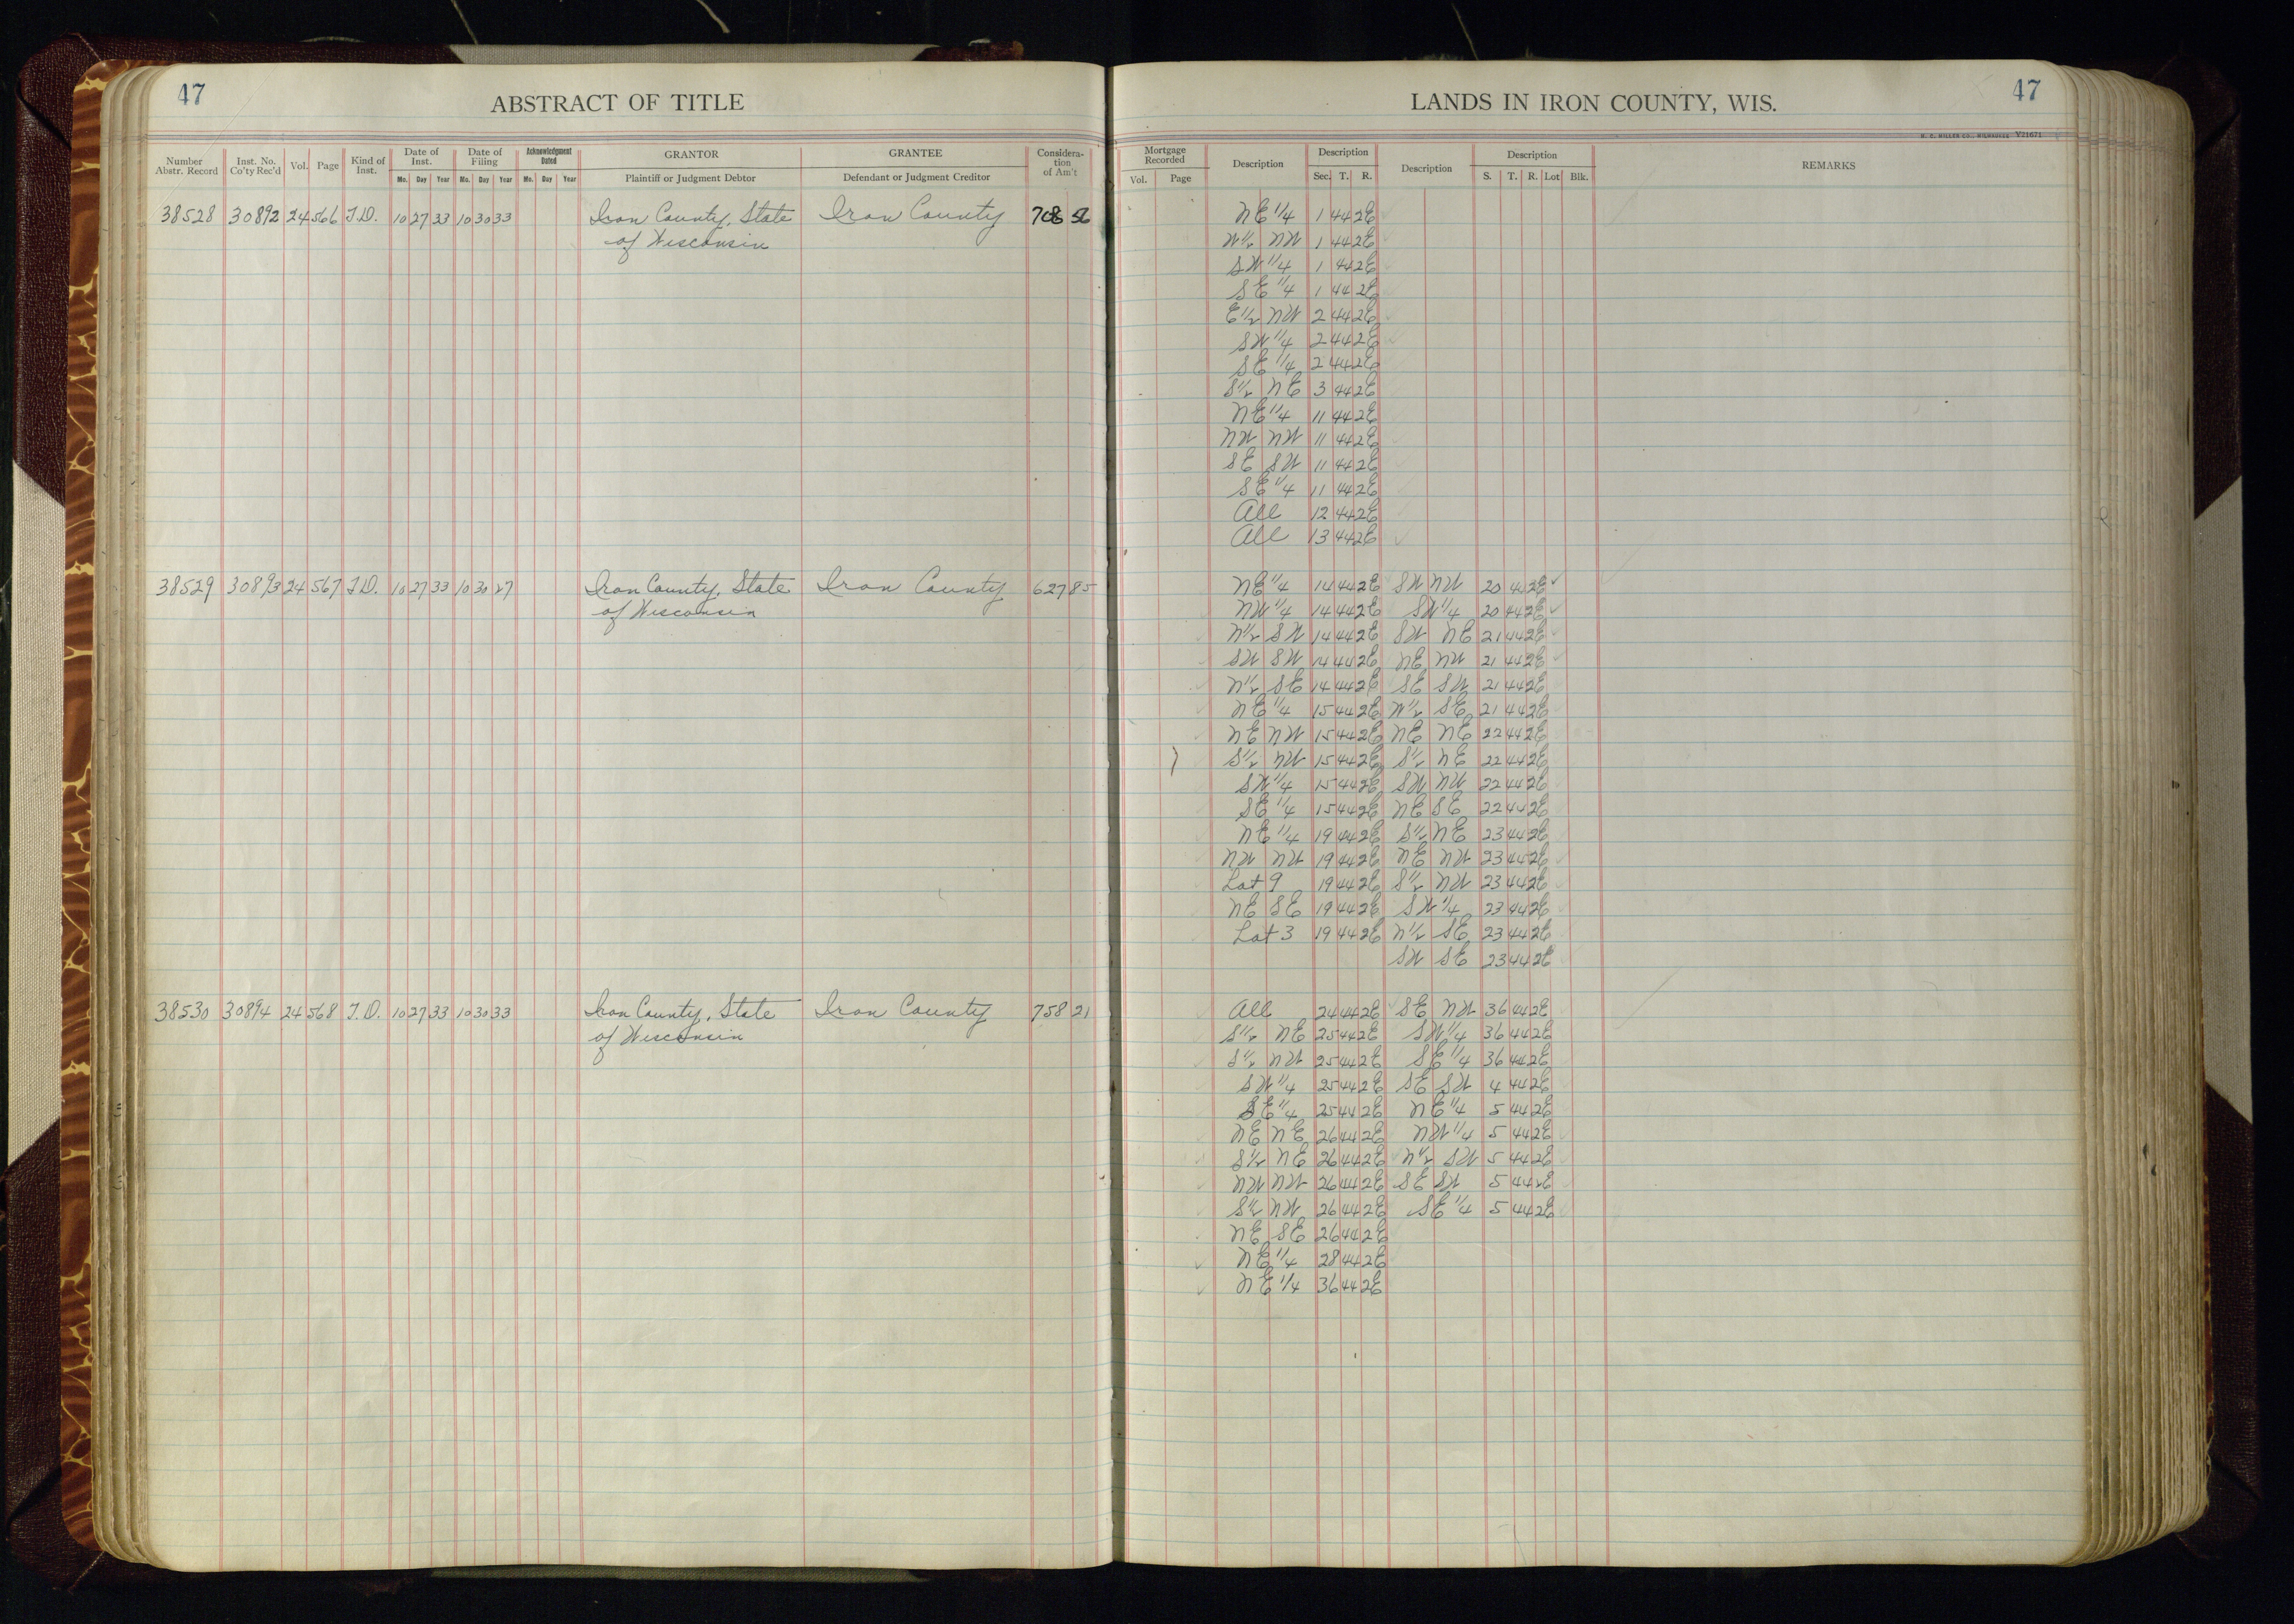 47
ABSTRACT OF TITLE
LANDS IN IRON COUNTY, WIS.
47
H. C. MILLER CO., MILWAUKEE Y21671
Number Abstr. Record Inst. No. Co'ty Rec'd Vol. Page Kind of Inst. Date of Inst. Mo. Day Year Date of Filing Mo. Day Year Acknowledgment Dated Mo. Day Year GRANTOR Plaintiff or Judgment Debtor GRANTEE Defendant or Judgment Creditor Considera-tion of Am't
Mortgage Recorded Vol. Page Description Description Sec. T. R. Description Description S. T. R. Lot Blk. REMARKS
38528 30892 24 566 T.D. 10 27 33 10 30 33 Iron County, State Iron County 708 56 NE 1/4 1 44 2E
of Wisconsin W1/2 NW 1 44 2E
SW 1/4 1 44 2E
SE 1/4 1 44 2E
E1/2 NW 2 44 2E
SW 1/4 2 44 2E
SE 1/4 2 44 2E
S1/2 NE 3 44 2E
NE 1/4 11 44 2E
NW NW 11 44 2E
SE SW 11 44 2E
SE 1/4 11 44 2E
All 12 44 2E
All 13 44 2E
38529 30893 24 567 T.D. 10 27 33 10 30 27 Iron County, State Iron County 627 85 NE 1/4 14 44 2E SW NW 20 44 2E
of Wisconsin NW 1/4 14 44 2E SW 1/4 20 44 2E
N1/2 SW 14 44 2E SW NE 21 44 2E
SW SW 14 44 2E NE NW 21 44 2E
N1/2 SE 14 44 2E SE SW 21 44 2E
NE 1/4 15 44 2E W1/2 SE 21 44 2E
NE NW 15 44 2E NE NE 22 44 2E
S1/2 NW 15 44 2E S1/2 NE 22 44 2E
SW 1/4 15 44 2E SW NW 22 44 2E
SE 1/4 15 44 2E NE SE 22 44 2E
NE 1/4 19 44 2E S1/2 NE 23 44 2E
NW NW 19 44 2E NE NW 23 44 2E
Lot 9 19 44 2E S1/2 NW 23 44 2E
NE SE 19 44 2E SW 1/4 23 44 2E
Lot 3 19 44 2E N1/2 SE 23 44 2E
SW SE 23 44 2E
38530 30894 24 568 T.D. 10 27 33 10 30 33 Iron County, State Iron County 758 21 All 24 44 2E SE NW 36 44 2E
of Wisconsin S1/2 NE 25 44 2E SW 1/4 36 44 2E
S1/2 NW 25 44 2E SE 1/4 36 44 2E
SW 1/4 25 44 2E SE SW 4 44 2E
SE 1/4 25 44 2E NE 1/4 5 44 2E
NE NE 26 44 2E NW 1/4 5 44 2E
S1/2 NE 26 44 2E N1/2 SW 5 44 2E
NW NW 26 44 2E SE SW 5 44 2E
S1/2 NW 26 44 2E SE 1/4 5 44 2E
NE SE 26 44 2E
NE 1/4 28 44 2E
NE 1/4 36 44 2E